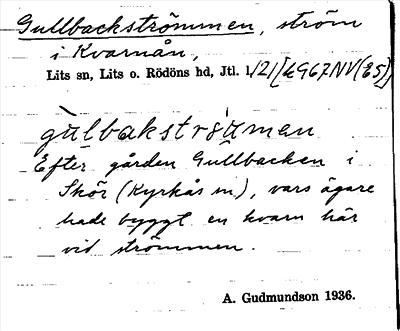 Gullbackströmmen, ström
i Kvarnån,
Lits sn, Lits o. Rödöns hd, Jtl. 1/21
gulbakströmen
Efter gården Gullbacken i
Skör (Kyrkås sn), vars ägare
hade byggt en kvarn här
vid strömmen.
A. Gudmundson 1936.